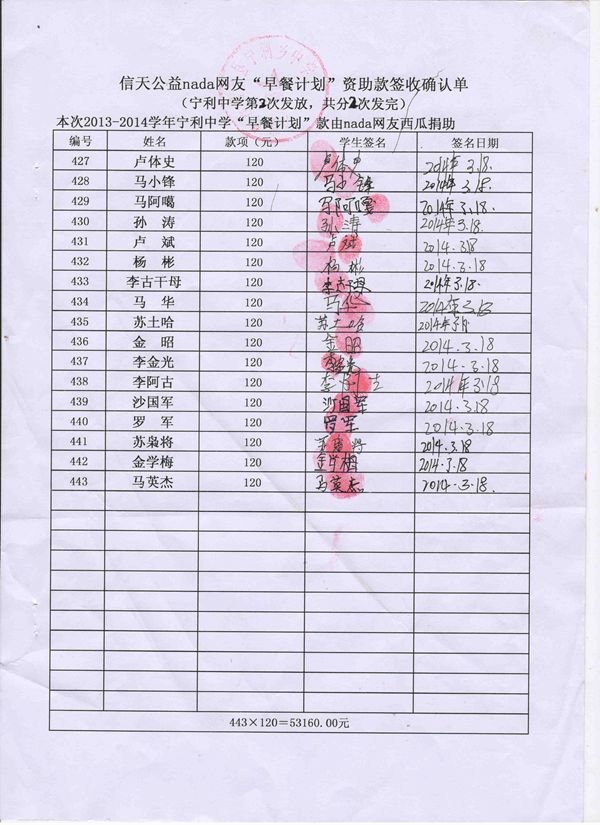 信天公益nada网友“早餐计划”资助款签收确认单
（宁利中学第2次发放，共分2次发完）
本次2013-2014学年宁利中学“早餐计划”款由nada网友西瓜捐助
编号 姓名 款项（元） 学生签名 签名日期
427 卢体史 120 卢体史 2014年3.18.
428 马小锋 120 马小锋 2014年3.18.
429 马阿噶 120 马阿 2014年3.18.
430 孙涛 120 孙涛 2014年3.18.
431 卢斌 120 卢斌 2014.3.18
432 杨彬 120 杨彬 2014.3.18
433 李古干母 120 2014年3.18.
434 马华 120 马华 2014年3.13
435 苏土哈 120 苏土哈 2014年3月
436 金昭 120 金昭 2014.3.18
437 李金光 120 李金光 2014.3.18
438 李阿古 120 李阿古 2014年3.18
439 沙国军 120 沙国军 2014.3.18
440 罗军 120 罗军 2014.3.18
441 苏枭将 120 苏枭将 2014.3.18
442 金学梅 120 金学梅 2014.3.18
443 马英杰 120 马英杰 2014.3.18.
443×120＝53160.00元